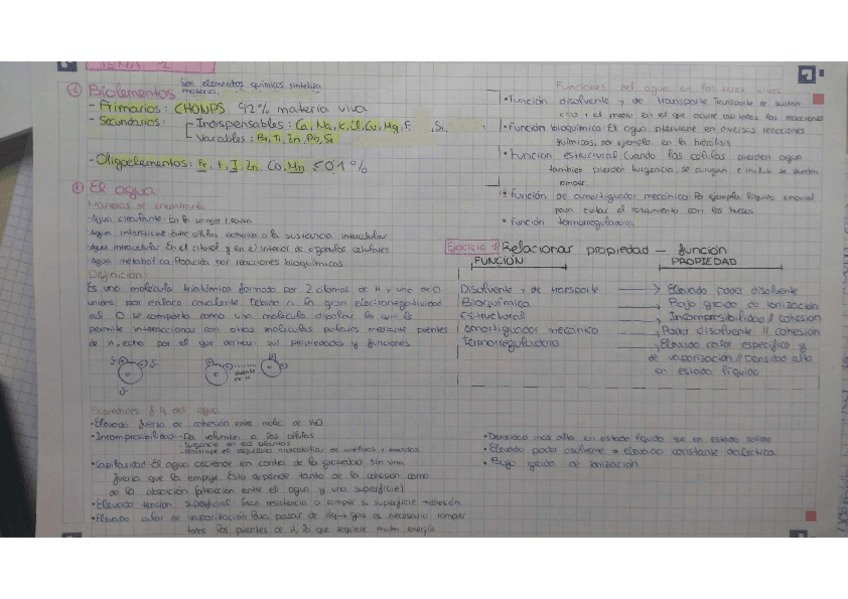 TEMA 1
① Bioelementos Son elementos químicos sintetiza materia.
- Primarios: CHONPS 92% materia viva
- Secundarios:
Indispensables: Ca, Na, K, Cl, Mg, F, Si,
Variables: Ti, Zn, Pb,
- Oligoelementos: Fe, I, Zn, Co, Mn ≤ 0'1 %
② El agua
Maneras de encontrarla
· Agua circulante: En la sangre
· Agua intersticial Entre células a la sustancia intercelular
· Agua intracelular En el citosol y en el interior de orgánulos celulares
· Agua metabólica por reacciones bioquímicas
Definición:
Es una molécula triatómica formada por 2 átomos de H y uno de O
unidos por enlace covalente. Debido a la gran electronegatividad
del O se comporta como una molécula dipolar lo que le
permite interaccionar con otras moléculas polares mediante puentes
de H, echo por el que derivan sus propiedades y funciones.
Propiedades del agua
· Elevada fuerza de cohesión entre moléc de H₂O
· Incompresibilidad: Da volumen a las células
- Turgencia en las plantas
· Capilaridad: El agua asciende en contra de la gravedad sin una
fuerza que la empuje. Esto depende tanto de la cohesión como
de la (atracción entre el agua y una superficie)
· Elevada tensión superficial: Gran resistencia a romper su superficie → cohesión
· Elevado calor de vaporización: Para pasar de líq → gas es necesario romper
todos los puentes de H, lo que requiere mucha energía
Funciones del agua en los seres vivos
· Función disolvente y de transporte
el medio en el que ocurre casi todas las reacciones
· Función bioquímica: El agua interviene en diversas reacciones
químicas, por ejemplo, en la hidrólisis
· Función estructural: Cuando las células pierden agua
también pierden turgencia, se arrugan e incluso se pueden
romper
· Función de amortiguador mecánico: Por ejemplo líquido sinovial
para evitar el rozamiento con los huesos
· Función termorreguladora
Ejercicio 1 Relacionar propiedad — función
FUNCIÓN PROPIEDAD
Disolvente y de transporte → Elevado poder disolvente
Bioquímica → Bajo grado de ionización
Estructural → Incompresibilidad // cohesión
Amortiguador mecánico → Poder disolvente // cohesión
Termorreguladora → Elevado calor específico y
de vaporización // Densidad alta
en estado líquido
· Densidad más alta en estado líquido que en estado sólido
· Elevado poder disolvente = elevada constante dieléctrica
· Bajo grado de ionización